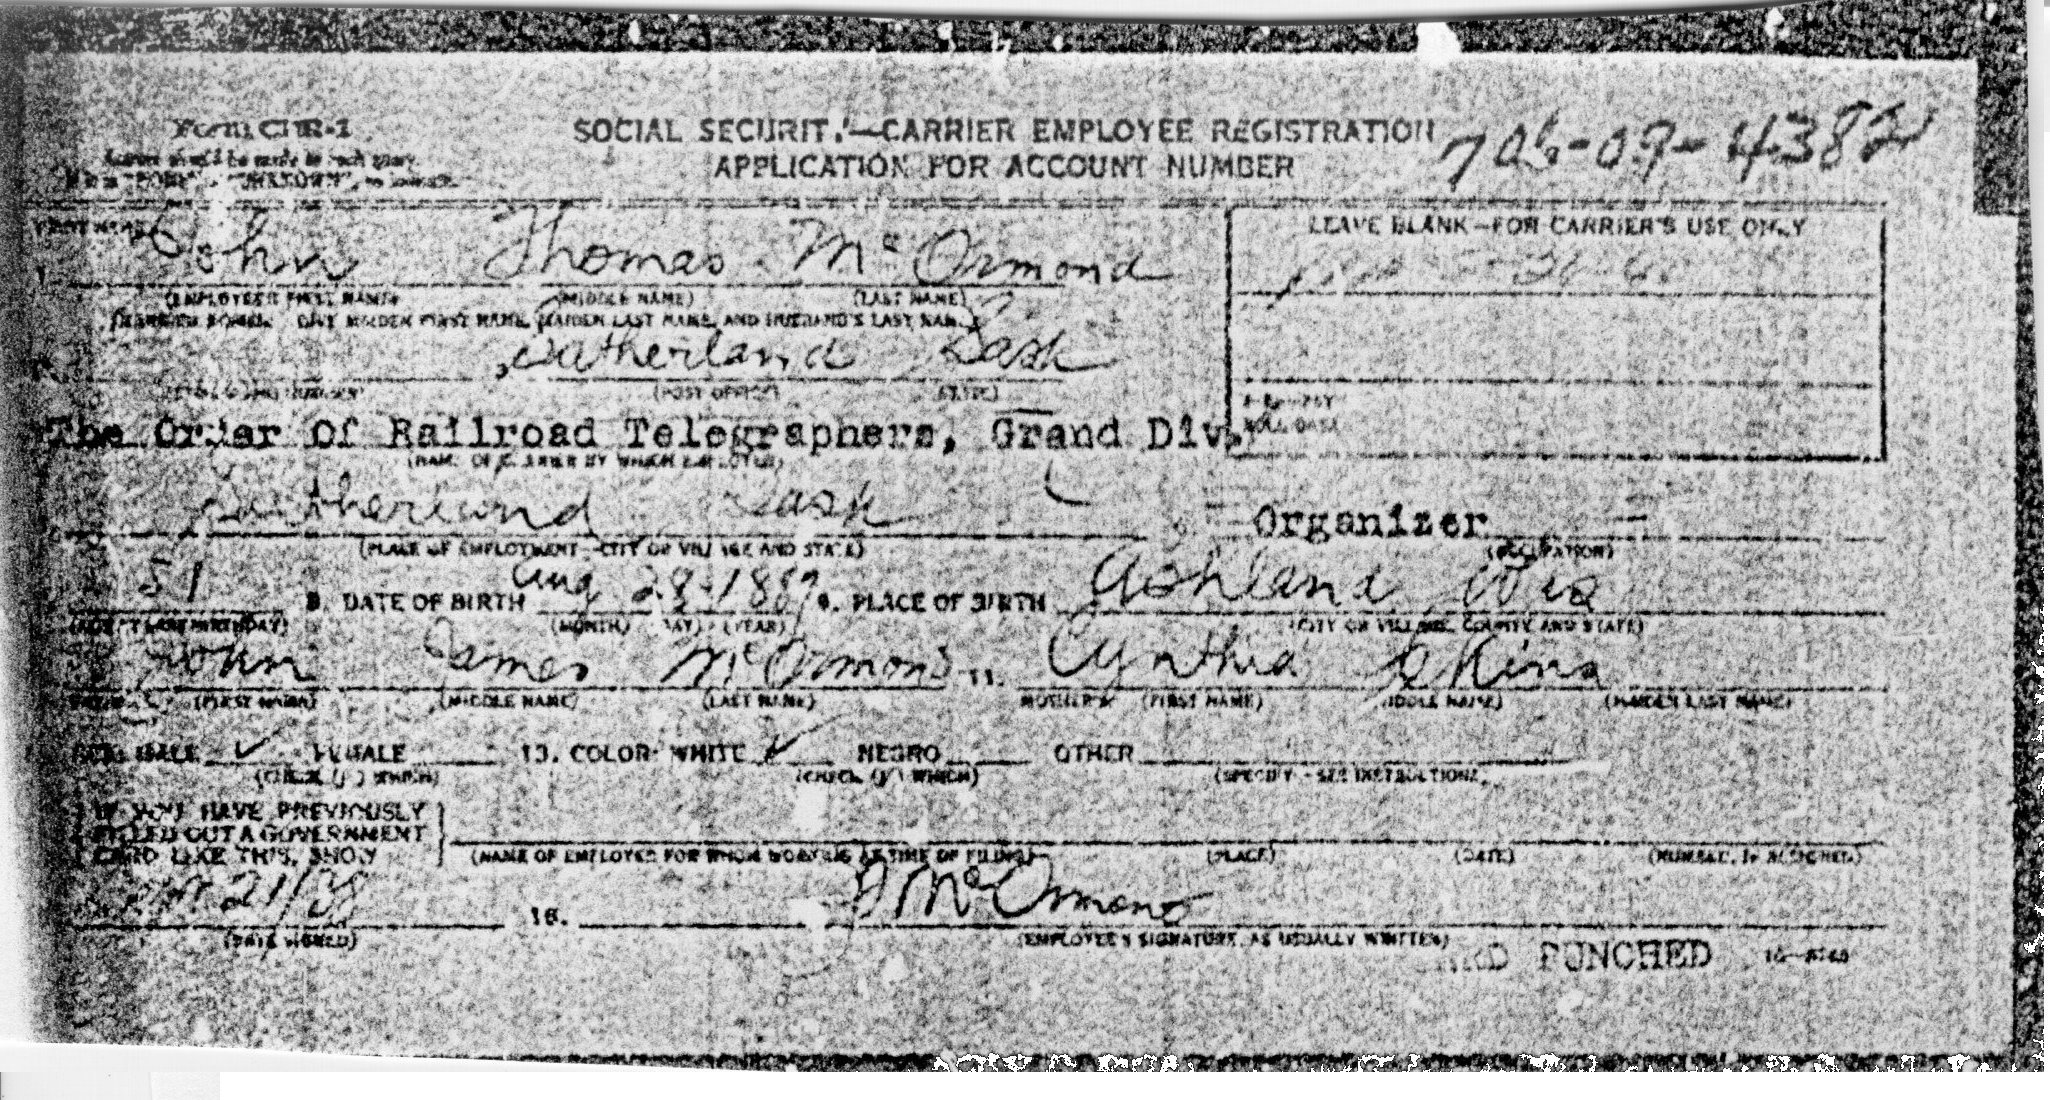 Form CER-1
SOCIAL SECURIT.'—CARRIER EMPLOYEE REGISTRATION
APPLICATION FOR ACCOUNT NUMBER
706-09-4382
LEAVE BLANK—FOR CARRIER'S USE ONLY
PRINT NAME
1. John Thomas McOrmond
(EMPLOYEE'S FIRST NAME) (MIDDLE NAME) (LAST NAME)
GIVE MAIDEN FIRST NAME, MAIDEN LAST NAME, AND HUSBAND'S LAST NAME
Sutherland Sask
(POST OFFICE) (STATE)
The Order Of Railroad Telegraphers, Grand Div.
(NAME OF CARRIER BY WHICH EMPLOYED)
Sutherland Sask
Organizer
(PLACE OF EMPLOYMENT—CITY OR VILLAGE AND STATE) (OCCUPATION)
51 8. DATE OF BIRTH Aug 28-1887 9. PLACE OF BIRTH Ashland Wis
(AGE AT LAST BIRTHDAY) (MONTH) (DAY) (YEAR) (CITY OR VILLAGE, COUNTY AND STATE)
John James McOrmond 11. Cynthia
(FIRST NAME) (MIDDLE NAME) (LAST NAME) MOTHER'S (FIRST NAME) (MIDDLE NAME) (MAIDEN LAST NAME)
SEX: MALE ✓ FEMALE 13. COLOR: WHITE ✓ NEGRO OTHER
(CHECK (✓) WHICH) (CHECK (✓) WHICH) (SPECIFY—SEE INSTRUCTIONS)
IF YOU HAVE PREVIOUSLY
FILLED OUT A GOVERNMENT
CARD LIKE THIS, SHOW
(NAME OF EMPLOYER FOR WHOM WORKING AT TIME OF FILING) (PLACE) (DATE) (NUMBER, IF ASSIGNED)
21/38 16. J McOrmond
(DATE SIGNED) (EMPLOYEE'S SIGNATURE, AS USUALLY WRITTEN)
PUNCHED